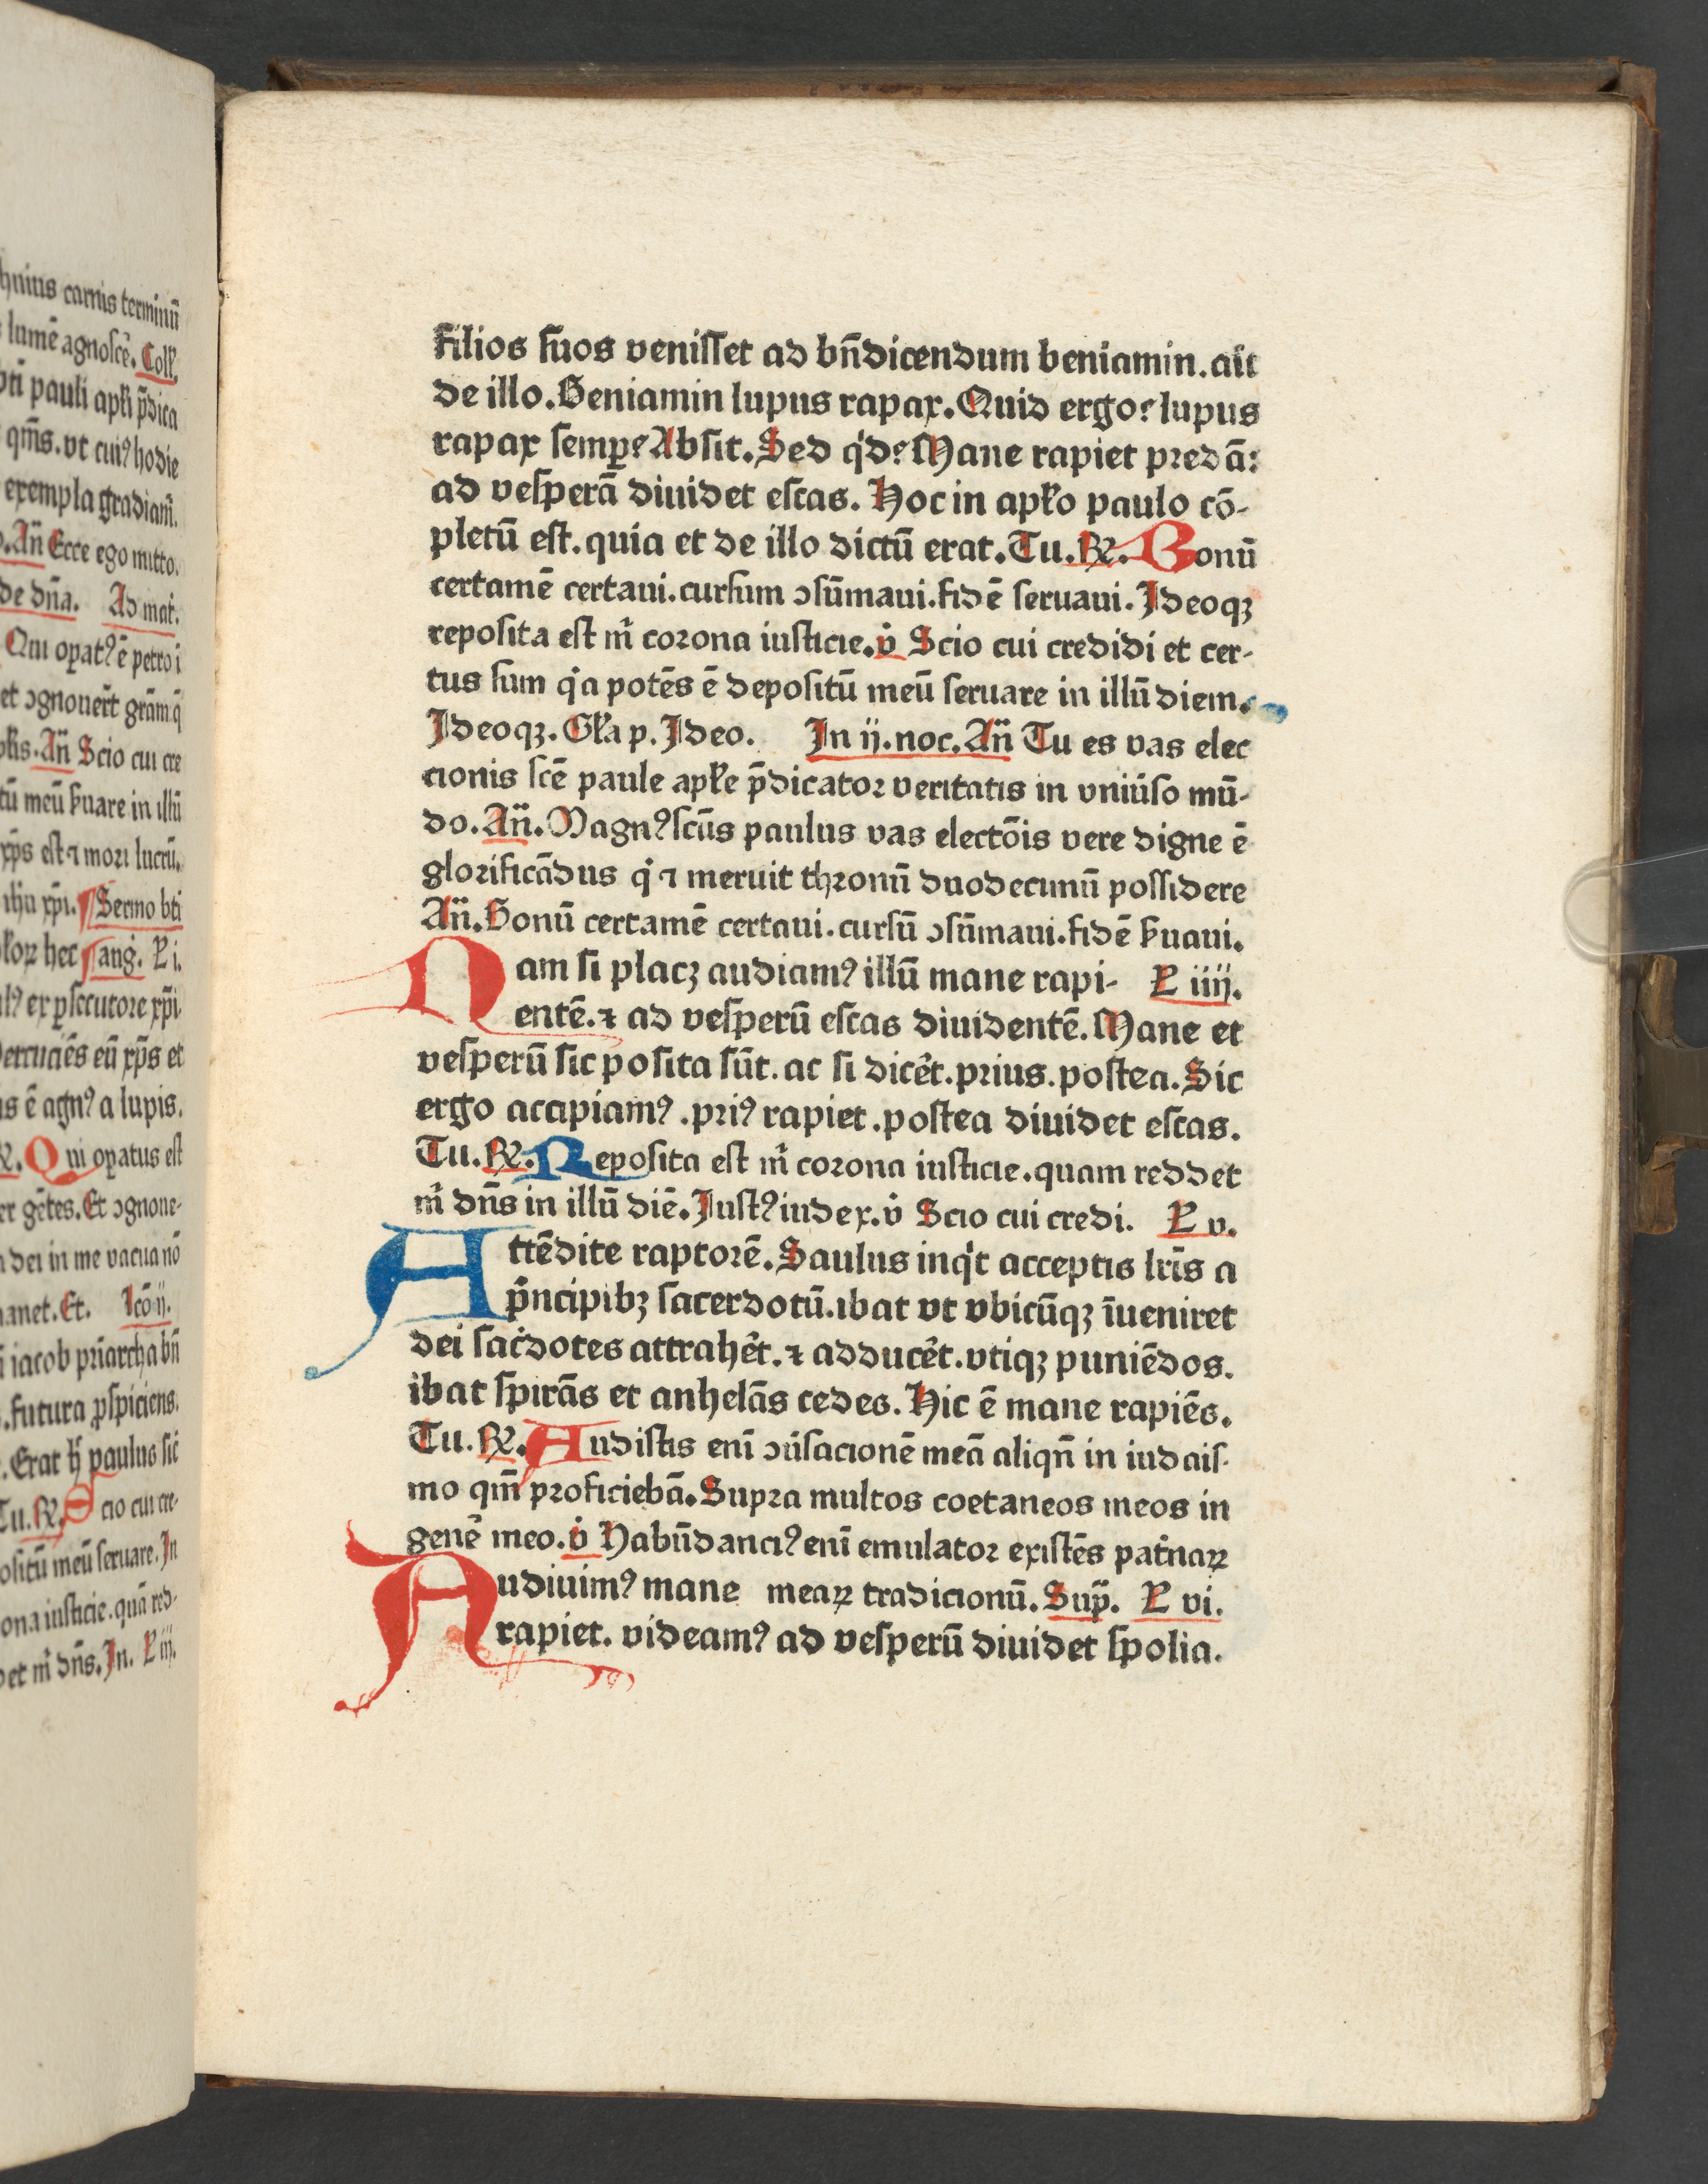 huius carnis terminū
lumē agnoscē. Coll̃.
bti pauli apl̃i p̄dica
qm̄s. vt cui⁹ hodie
exempla gradiam̃.
Añ Ecce ego mitto.
de dn̄a. Ad mat̃.
Qui oꝑat⁹ ē petro ī
et ↄgnouer̄t grām q̄
Añ Scio cui cre
tū meū ẜuare in illū
xp̄s est ⁊ mori lucrū.
ihu xp̄i. Sermo bti
hec sang̃. L̃ i.
ex ꝑsecutore xp̄i
eū xp̄s et
ē agn⁹ a lupis.
Qui oꝑatus est
gētes. Et ↄgnoue-
dei in me vacua nō
manet. Et. Lcō ij.
iacob pr̄iarcha bn̄
futura ꝓspiciens.
Erat paulus sic̄
Tu. ℟. Scio cui cre-
positū meū seruare. In
iusticie. quā red-
det m̄ dn̄s. In. L̃ iij.
filios suos venisset ad bn̄dicendum beniamin. ait
de illo. Beniamin lupus rapax. Quid ergo? lupus
rapax semꝑ? Absit. Sed qͥd? Mane rapiet predā:
ad vesperā diuidet escas. Hoc in apl̃o paulo cō-
pletū est. quia et de illo dictū erat. Tu. ℟. Bonū
certamē certaui. cursum ↄsūmaui. fidē seruaui. Ideoqꝫ
reposita est mͥ corona iusticie. ℣ Scio cui credidi et cer-
tus sum qͥa potēs ē depositū meū seruare in illū diem.
Ideoqꝫ. Gl̃a p. Ideo. In ij. noc. Añ Tu es vas elec
cionis scē paule apl̃e p̄dicator veritatis in vniũso mū-
do. Añ. Magn⁹ scūs paulus vas electōis vere digne ē
glorificādus qͥ ⁊ meruit thronū duodecimū possidere
Añ. Bonū certamē certaui. cursū ↄsūmaui. fidē ẜuaui.
Nam si placꝫ audiam⁹ illū mane rapi- L̃ iiij.
entē. ⁊ ad vesperū escas diuidentē. Mane et
vesperū sic posita sūt. ac si dicẽt. prius. postea. Sic
ergo accipiam⁹. pri⁹ rapiet. postea diuidet escas.
Tu. ℟. Reposita est mͥ corona iusticie. quam reddet
mͥ dn̄s in illū diē. Iust⁹ iudex. ℣ Scio cui credi. L̃ v.
Attēdite raptorē. Saulus inqͥt acceptis lr̄is a
pͥncipibꝫ sacerdotū. ibat vt vbicūqꝫ īueniret
dei sac̃dotes attrahẽt. ⁊ adducẽt. vtiqꝫ puniēdos.
ibat spirās et anhelās cedes. Hic ē mane rapiēs.
Tu. ℟. Audistis enī ↄũsacionē meā aliqn̄ in iudais-
mo qm̄ proficiebā. Supra multos coetaneos meos in
genẽ meo. ℣ Habūdanci⁹ enī emulator existēs pat̃naꝝ
Audiuim⁹ mane meaꝝ tradicionū. Supͣ. L̃ vi.
rapiet. videam⁹ ad vesperū diuidet spolia.